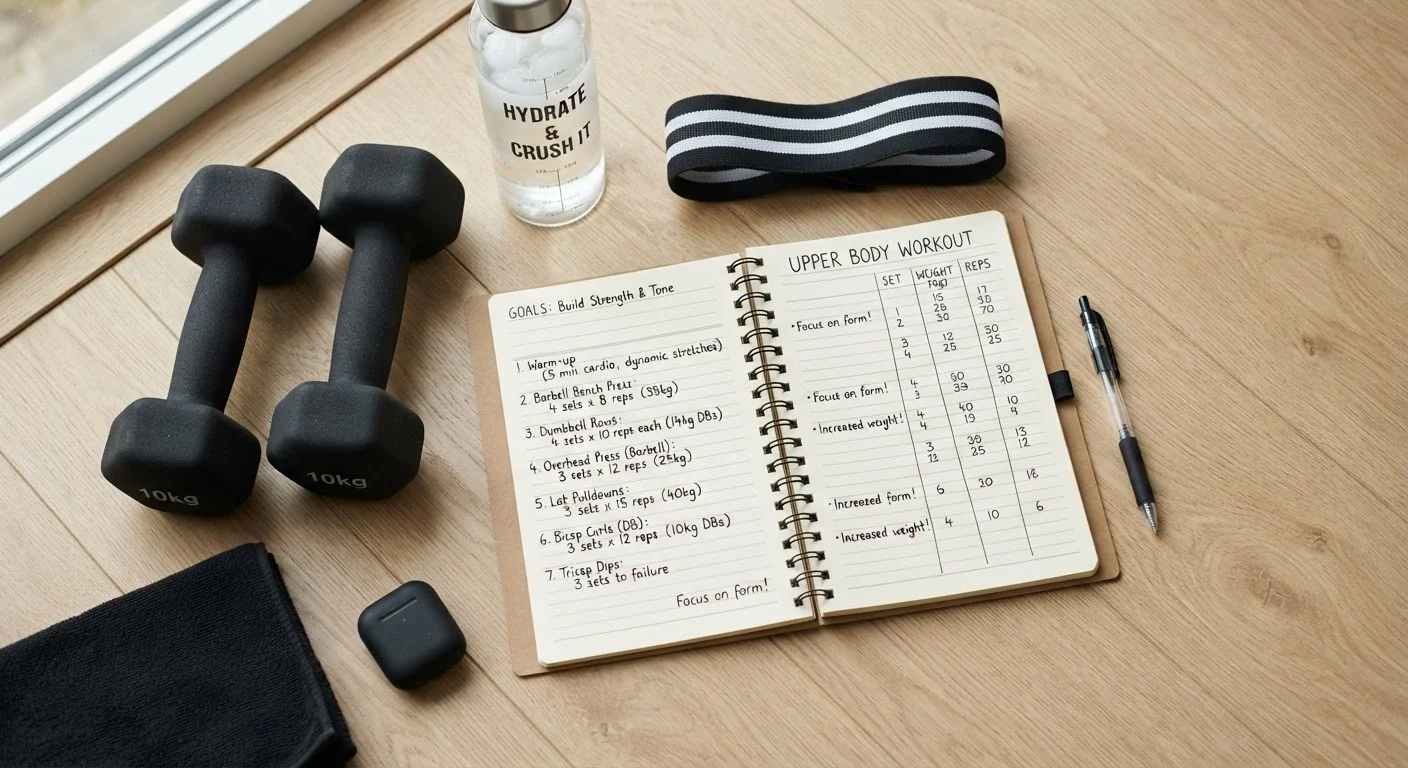 HYDRATE
&
CRUSH IT
10kg
10kg
GOALS: Build Strength & Tone
1. Warm-up
(5 min cardio, dynamic stretches)
2. Barbell Bench Press:
4 sets x 8 reps (38kg)
3. Dumbbell Rows:
4 sets x 10 reps each (14kg DBs)
4. Overhead Press (Barbell):
3 sets x 12 reps (25kg)
5. Lat Pulldowns:
3 sets x 15 reps (40kg)
6. Bicsp Curls (DB):
3 sets x 12 reps (10kg DBs)
7. Tricsp Dips:
3 sets to failure
Focus on form!
UPPER BODY WORKOUT
SET WEIGHT REPS
15 17
1 26 36
• Focus on form! 2 30 70
3 12 50
4 25 25
4 30
• Focus on form! 39 20
• Increased weight! 4 40 10
4 19 9
3 30 13
12 25 12
• Increezed form! 6 30 18
• Increased weight! 4 10 6